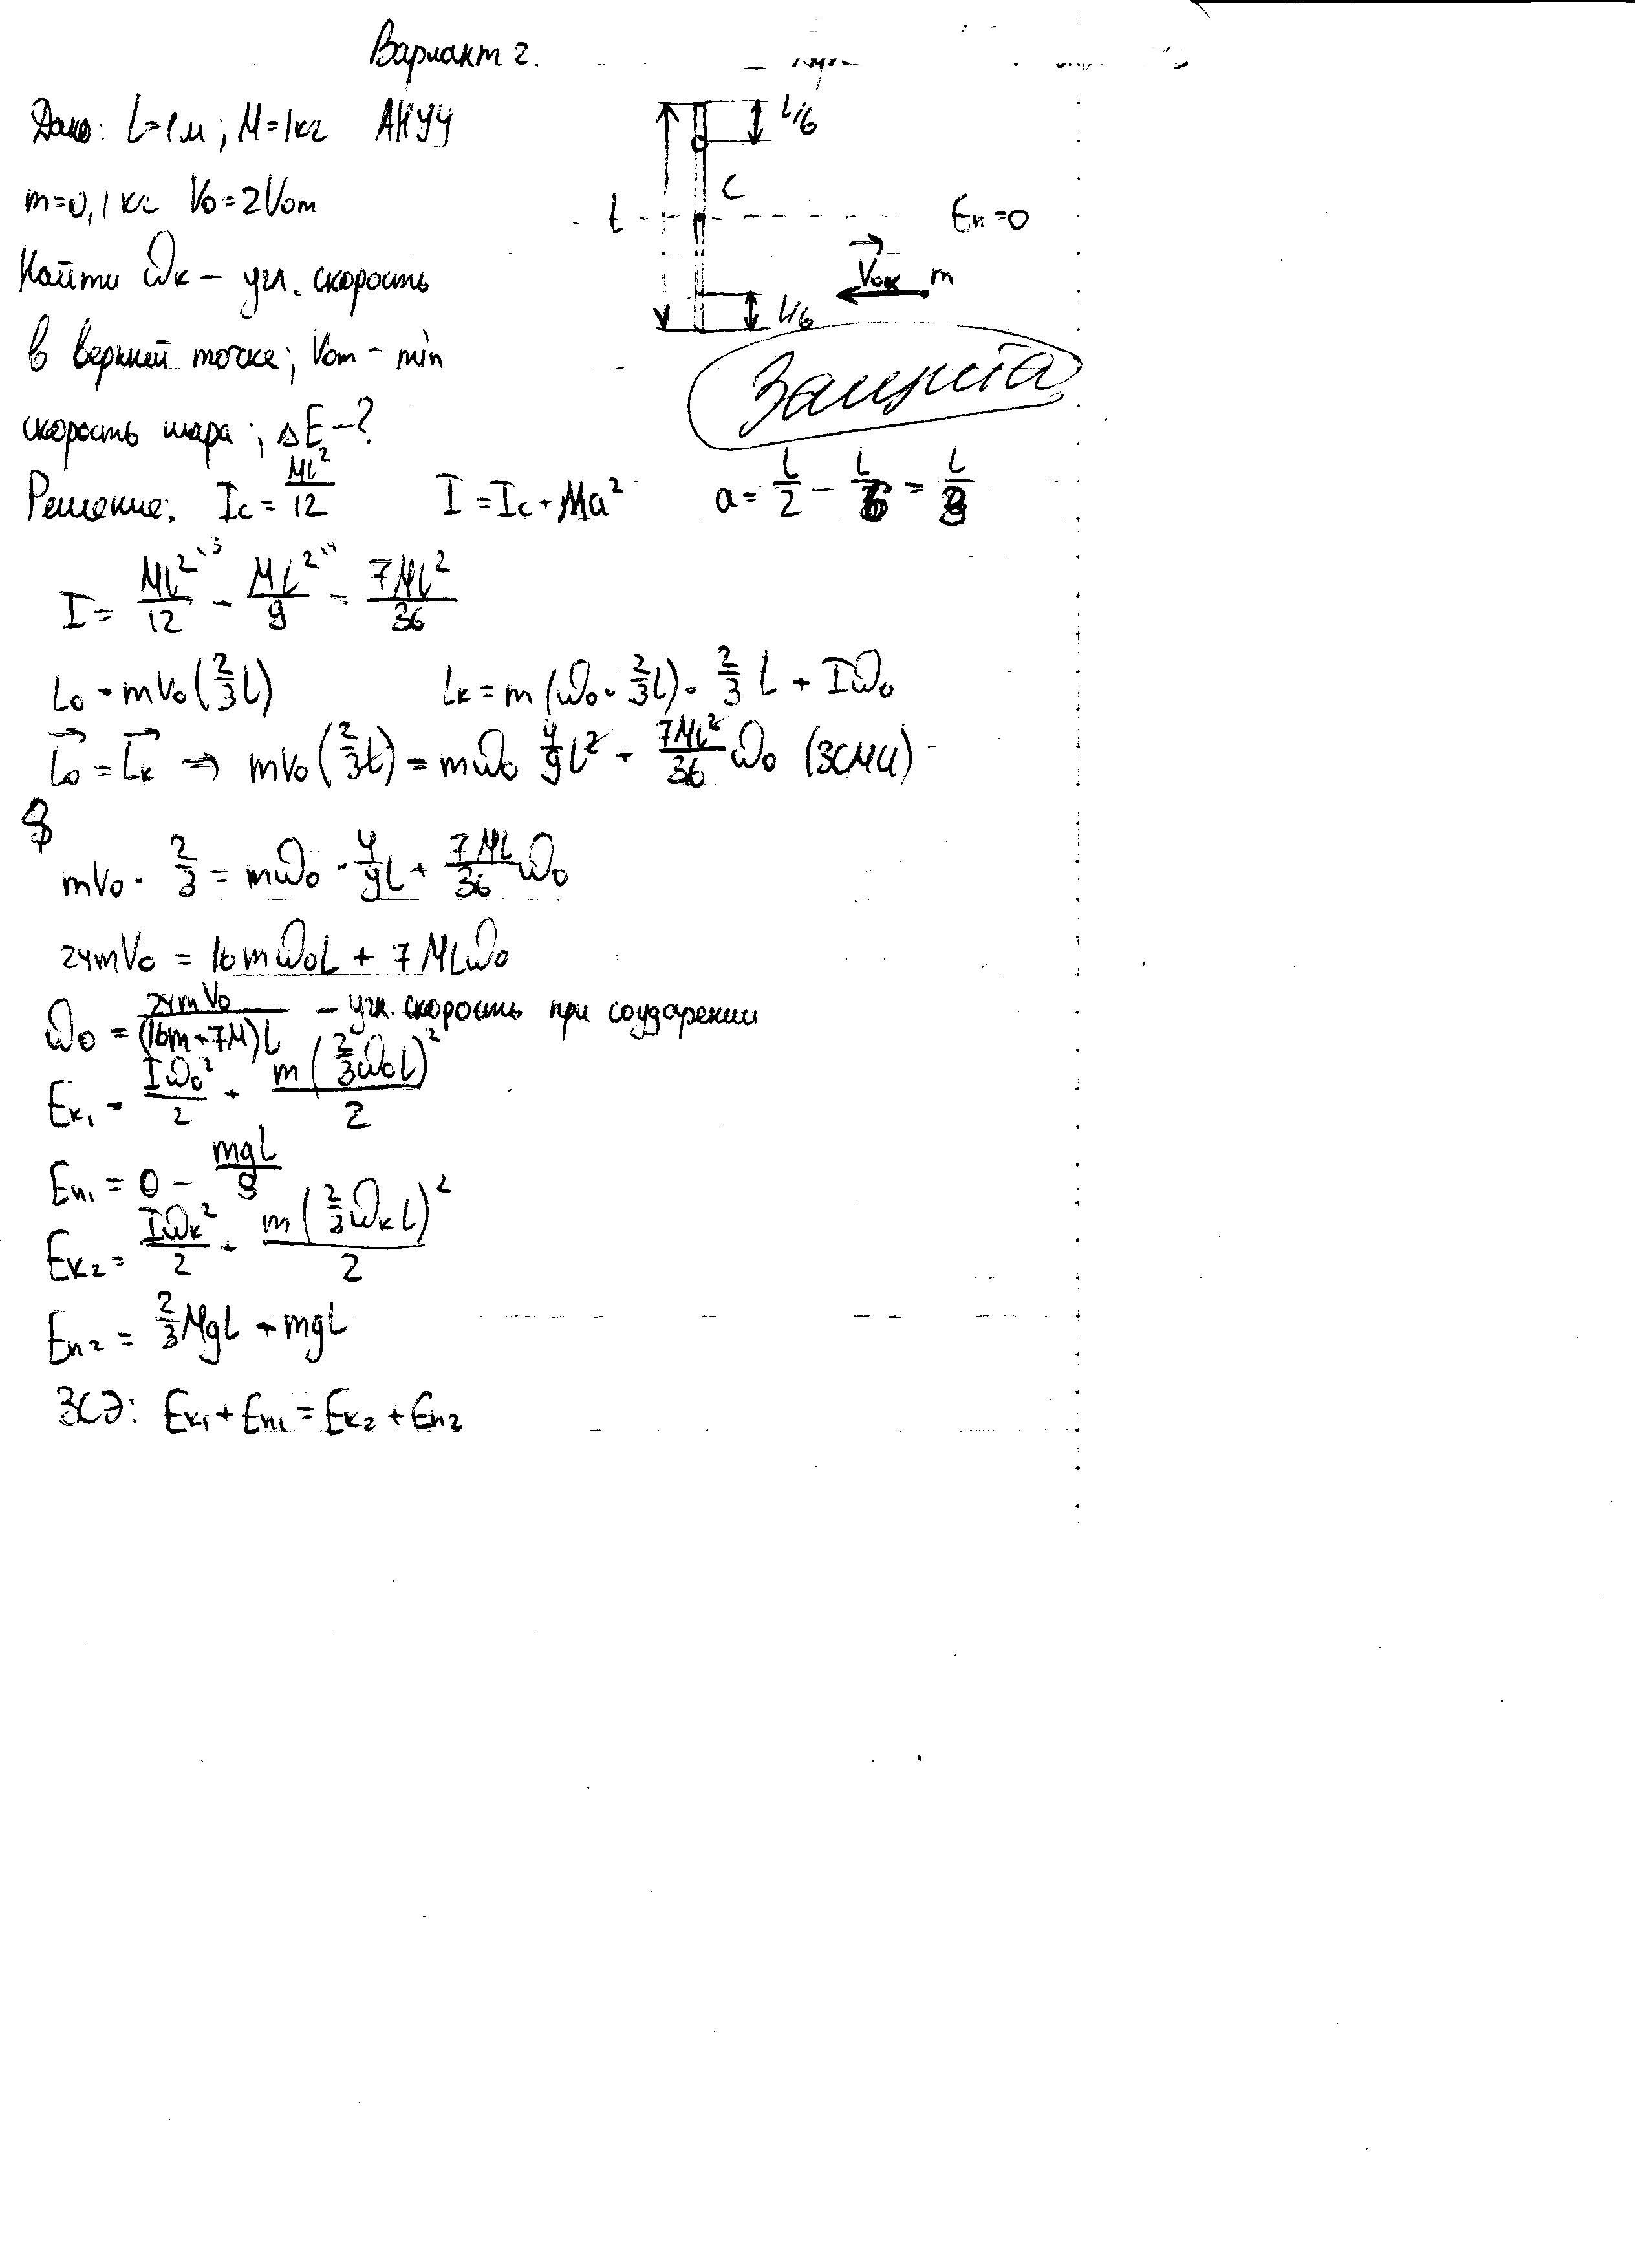 Вариант 2.
Дано: L=1м; M=1кг АНУЧ
m=0,1кг V₀=2V₀m
Найти ωк – угл. скорость
в верхней точке; V₀m – min
скорость шара; ΔE–?
L/6
C
L
Eп=0
V₀ m
L/6
Защита
Решение: Ic = ML²/12 I = Ic + Ma² a = L/2 – L/6 = L/3
I = ML²/12 + ML²/9 = 7ML²/36
L₀ = mV₀(2/3 L) Lк = m(ω₀·2/3 L)·2/3 L + Iω₀
L₀ = Lк ⇒ mV₀(2/3 L) = mω₀ 4/9 L² + 7ML²/36 ω₀ (ЗСМИ)
mV₀·2/3 = mω₀·4/9 L + 7ML/36 ω₀
24mV₀ = 16mω₀L + 7MLω₀
ω₀ = 24mV₀/(16m+7M)L – угл. скорость при соударении
Eк₁ = Iω₀²/2 + m(2/3 ω₀L)²/2
Eп₁ = 0 – mgL/3
Eк₂ = Iωк²/2 + m(2/3 ωкL)²/2
Eп₂ = 2/3 MgL + mgL
ЗСЭ: Eк₁+Eп₁=Eк₂+Eп₂